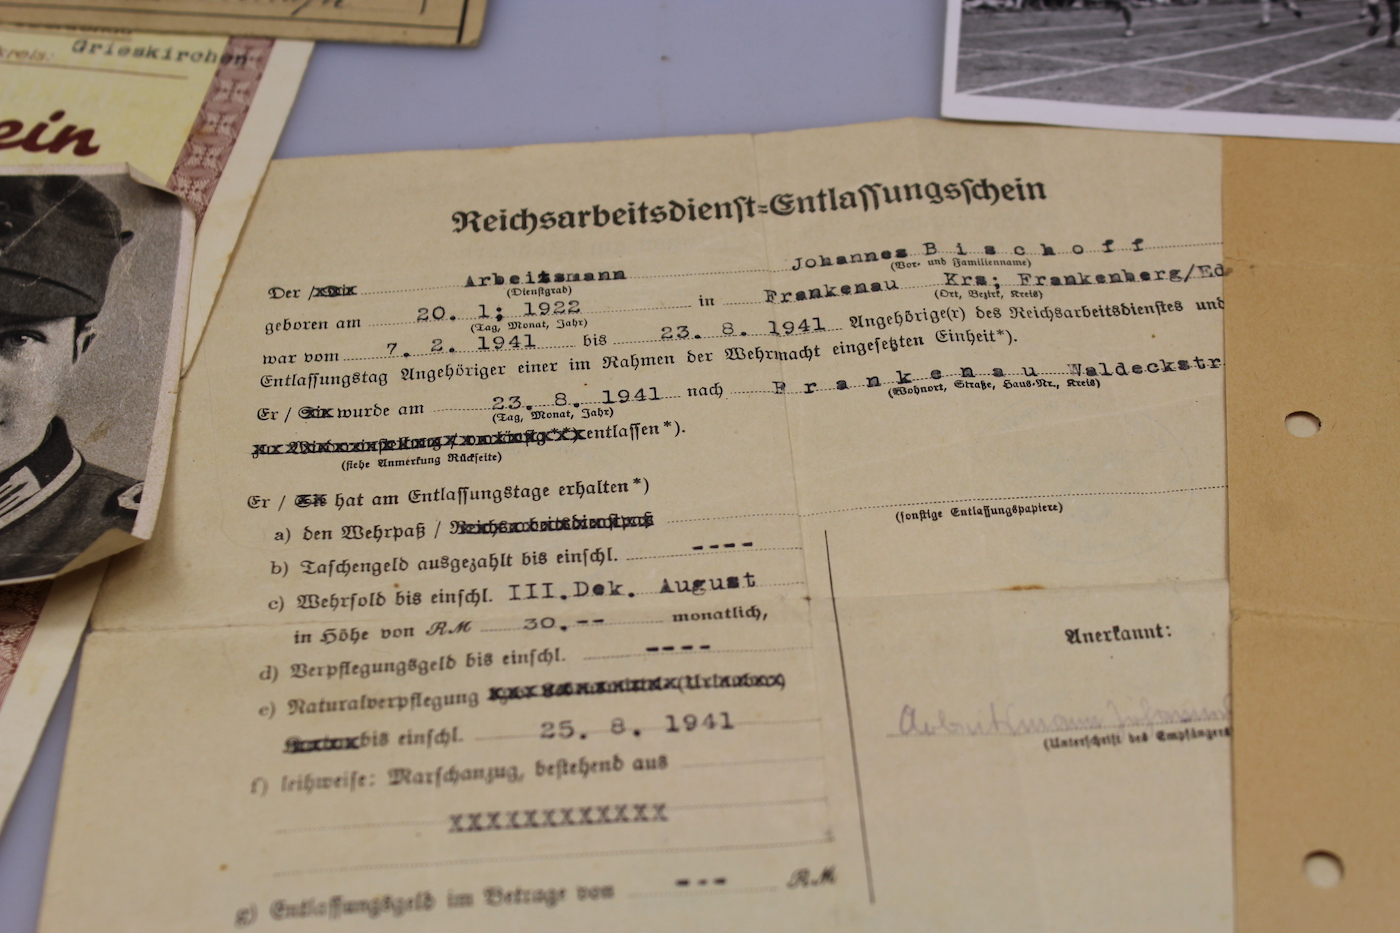 kreis: Grieskirchen
ein
Reichsarbeitsdienst=Entlassungsschein
Der / Arbeitsmann Johannes Bischoff
(Dienstgrad) (Vor- und Familienname)
geboren am 20. 1; 1922 in Frankenau Krs; Frankenberg/Ed
(Tag, Monat, Jahr) (Ort, Bezirk, Kreis)
war vom 7. 2. 1941 bis 23. 8. 1941 Angehörige(r) des Reichsarbeitsdienstes und
Entlassungstag Angehöriger einer im Rahmen der Wehrmacht eingesetzten Einheit*).
Er / wurde am 23. 8. 1941 nach Frankenau Waldeckstr
(Tag, Monat, Jahr) (Wohnort, Straße, Haus-Nr., Kreis)
entlassen*).
(siehe Anmerkung Rückseite)
Er / hat am Entlassungstage erhalten*)
a) den Wehrpaß / Reichsarbeitsdienstpaß
(sonstige Entlassungspapiere)
b) Taschengeld ausgezahlt bis einschl. ----
c) Wehrsold bis einschl. III.Dek. August
in Höhe von RM 30.-- monatlich,
d) Verpflegungsgeld bis einschl. ----
e) Naturalverpflegung
bis einschl. 25. 8. 1941
f) leihweise: Marschanzug, bestehend aus
XXXXXXXXXXXX
g) Entlassungsgeld im Betrage von --- RM
Anerkannt:
Arbeitsmann Johannes
(Unterschrift des Empfängers